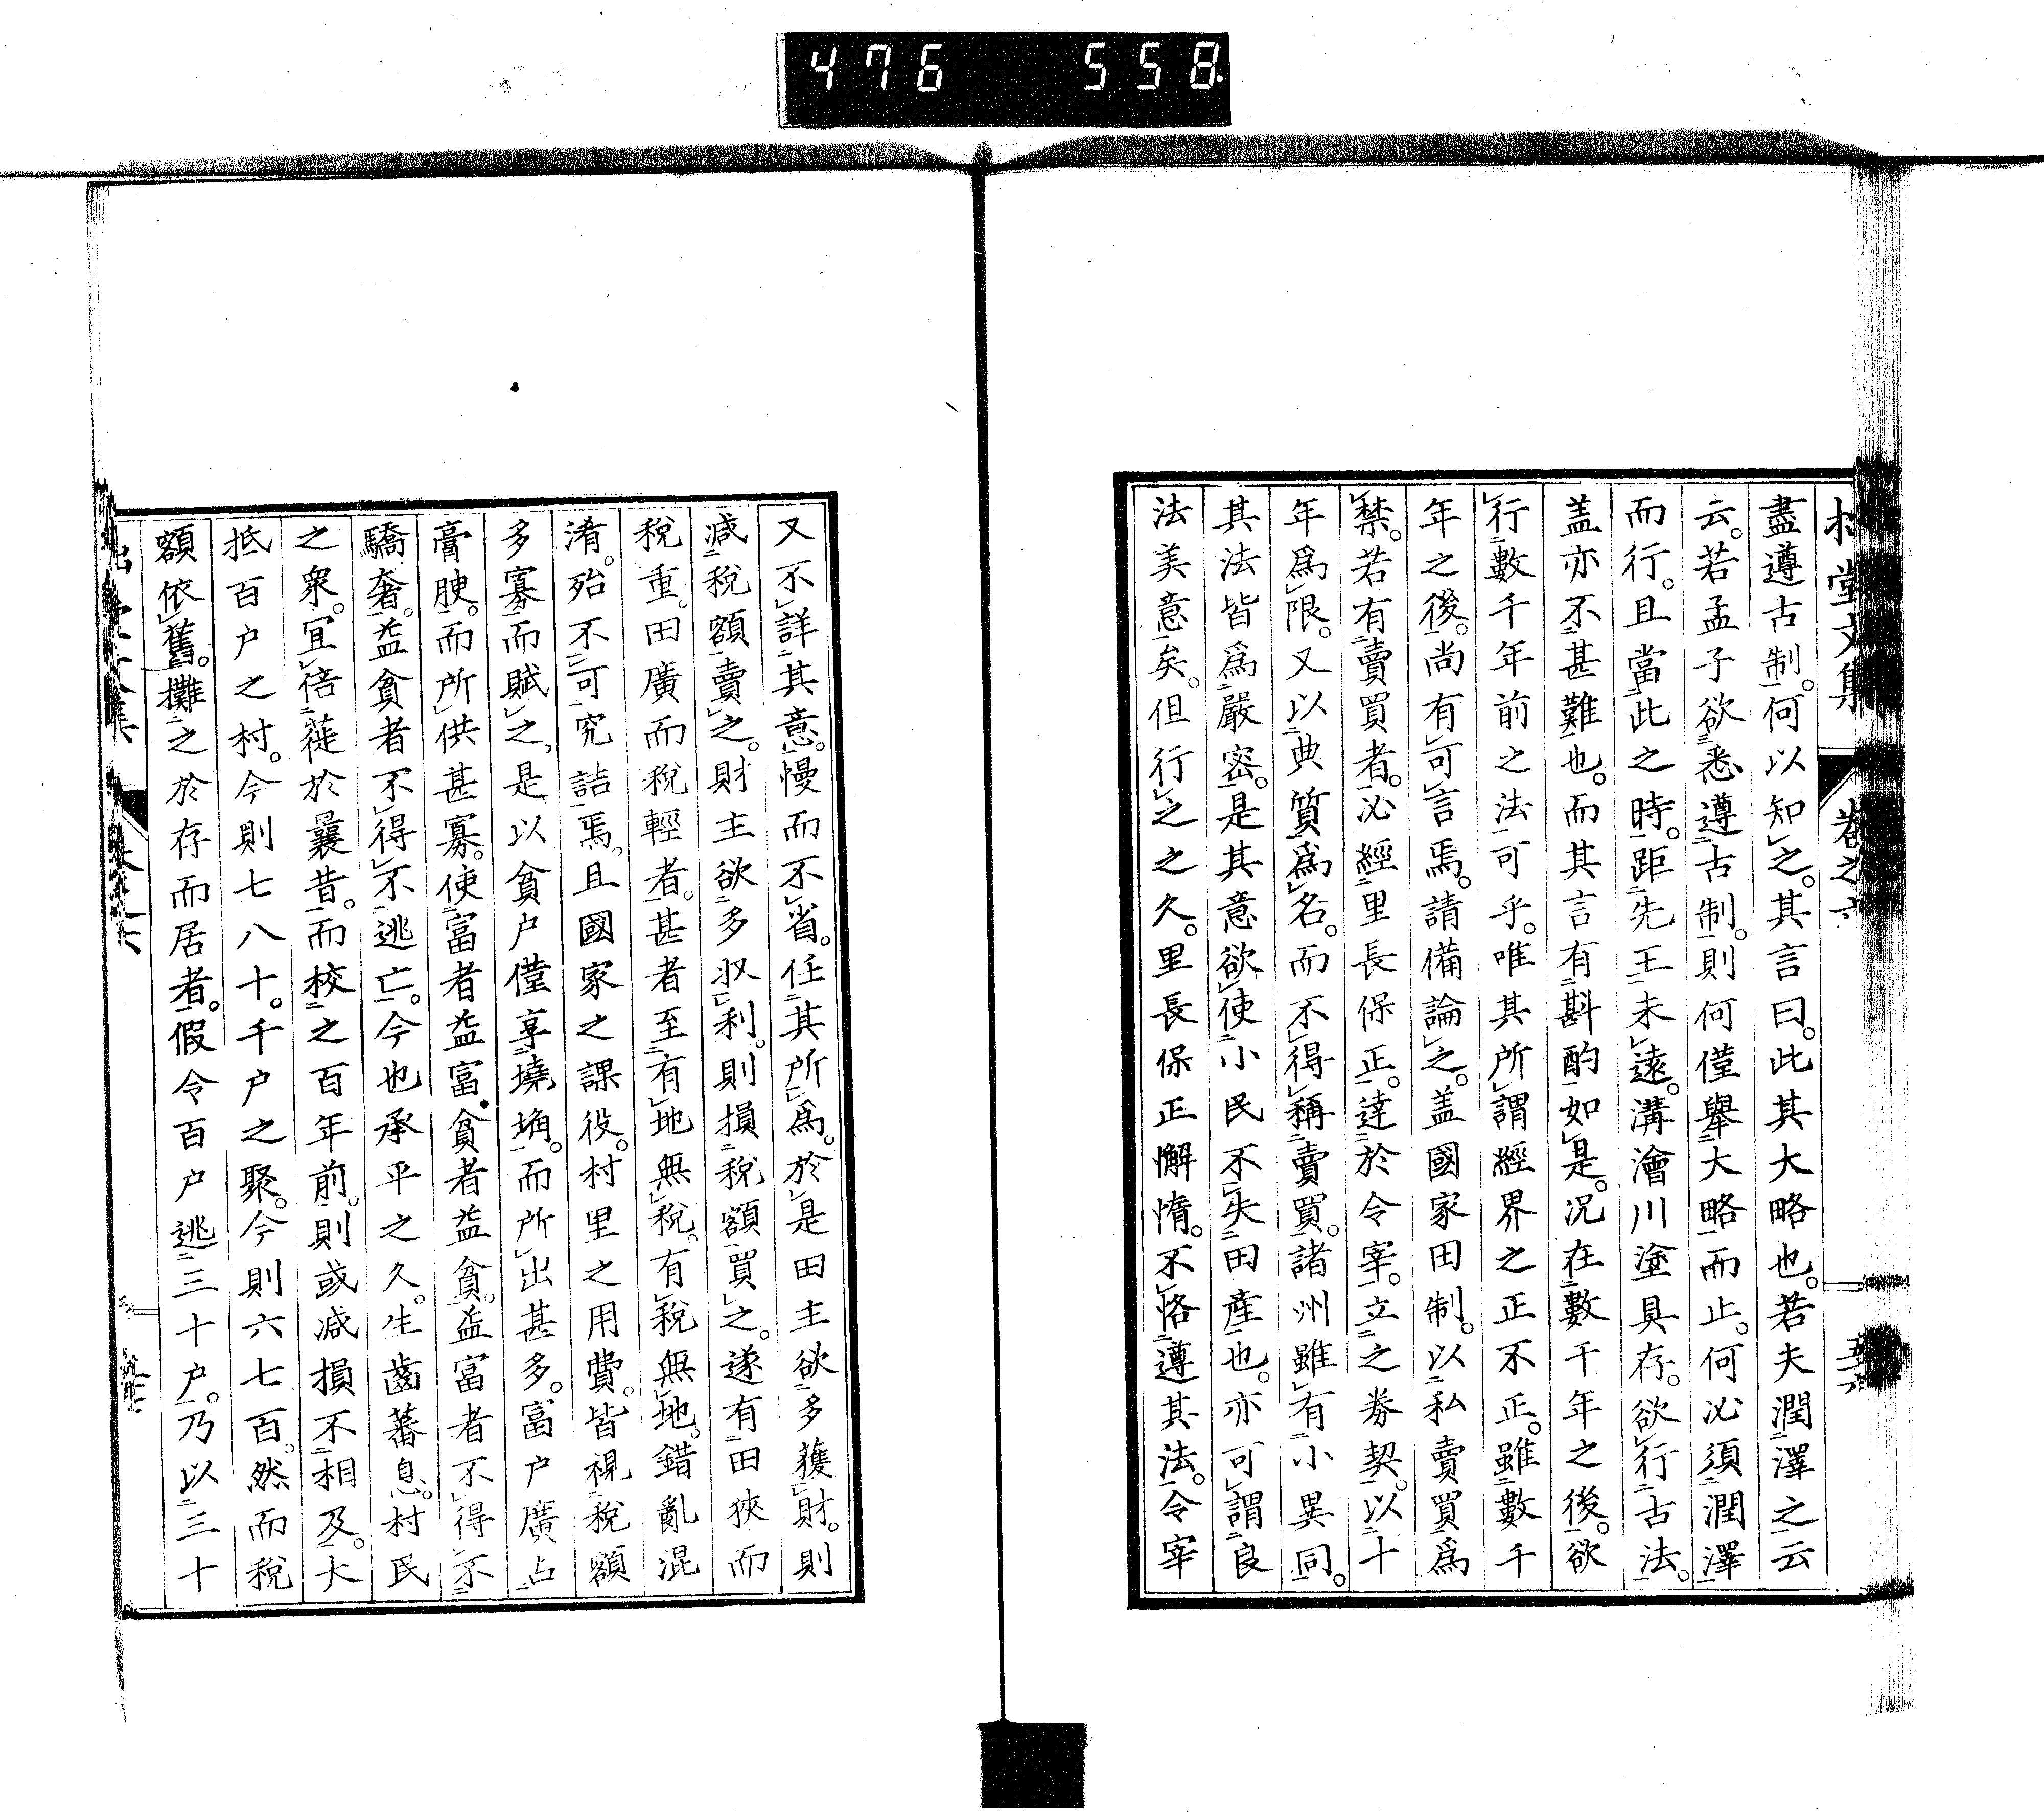 476 558
堂文集 卷之六
盡遵古制。何以知之。其言曰。此其大略也。若夫潤澤之云
云。若孟子欲悉遵古制。則何僅舉大略而止。何必須潤澤
而行。且當此之時。距先王未遠。溝澮川塗具存。欲行古法。
盖亦不甚難也。而其言有斟酌如是。况在數千年之後。欲
行數千年前之法可乎。唯其所謂經界之正不正。雖數千
年之後。尚有可言焉。請備論之。盖國家田制。以私賣買爲
禁。若有賣買者。必經里長保正。達於令宰。立之券契。以十
年爲限。又以典質爲名。而不得稱賣買。諸州雖有小異同。
其法皆爲嚴密。是其意欲使小民不失田産也。亦可謂良
法美意矣。但行之之久。里長保正懈惰。不恪遵其法。令宰
又不詳其意。慢而不省。任其所爲。於是田主欲多獲財。則
减税額賣之。財主欲多収利。則損税額買之。遂有田狹而
税重。田廣而税輕者。甚者至有地無税。有税無地。錯亂混
淆。殆不可究詰焉。且國家之課役。村里之用費。皆視税額
多寡而賦之、是以貪户僅享墝埆。而所出甚多。富户廣占
膏腴。而所供甚寡。使富者益富。貧者益貧。益富者不得不
驕奢。益貧者不得不逃亡。今也承平之久。生齒蕃息。村民
之衆。宜倍蓰於曩昔。而校之百年前。則或减損不相及。大
抵百户之村。今則七八十。千户之聚。今則六七百。然而税
額依舊。攤之於存而居者。假令百户逃三十户。乃以三十